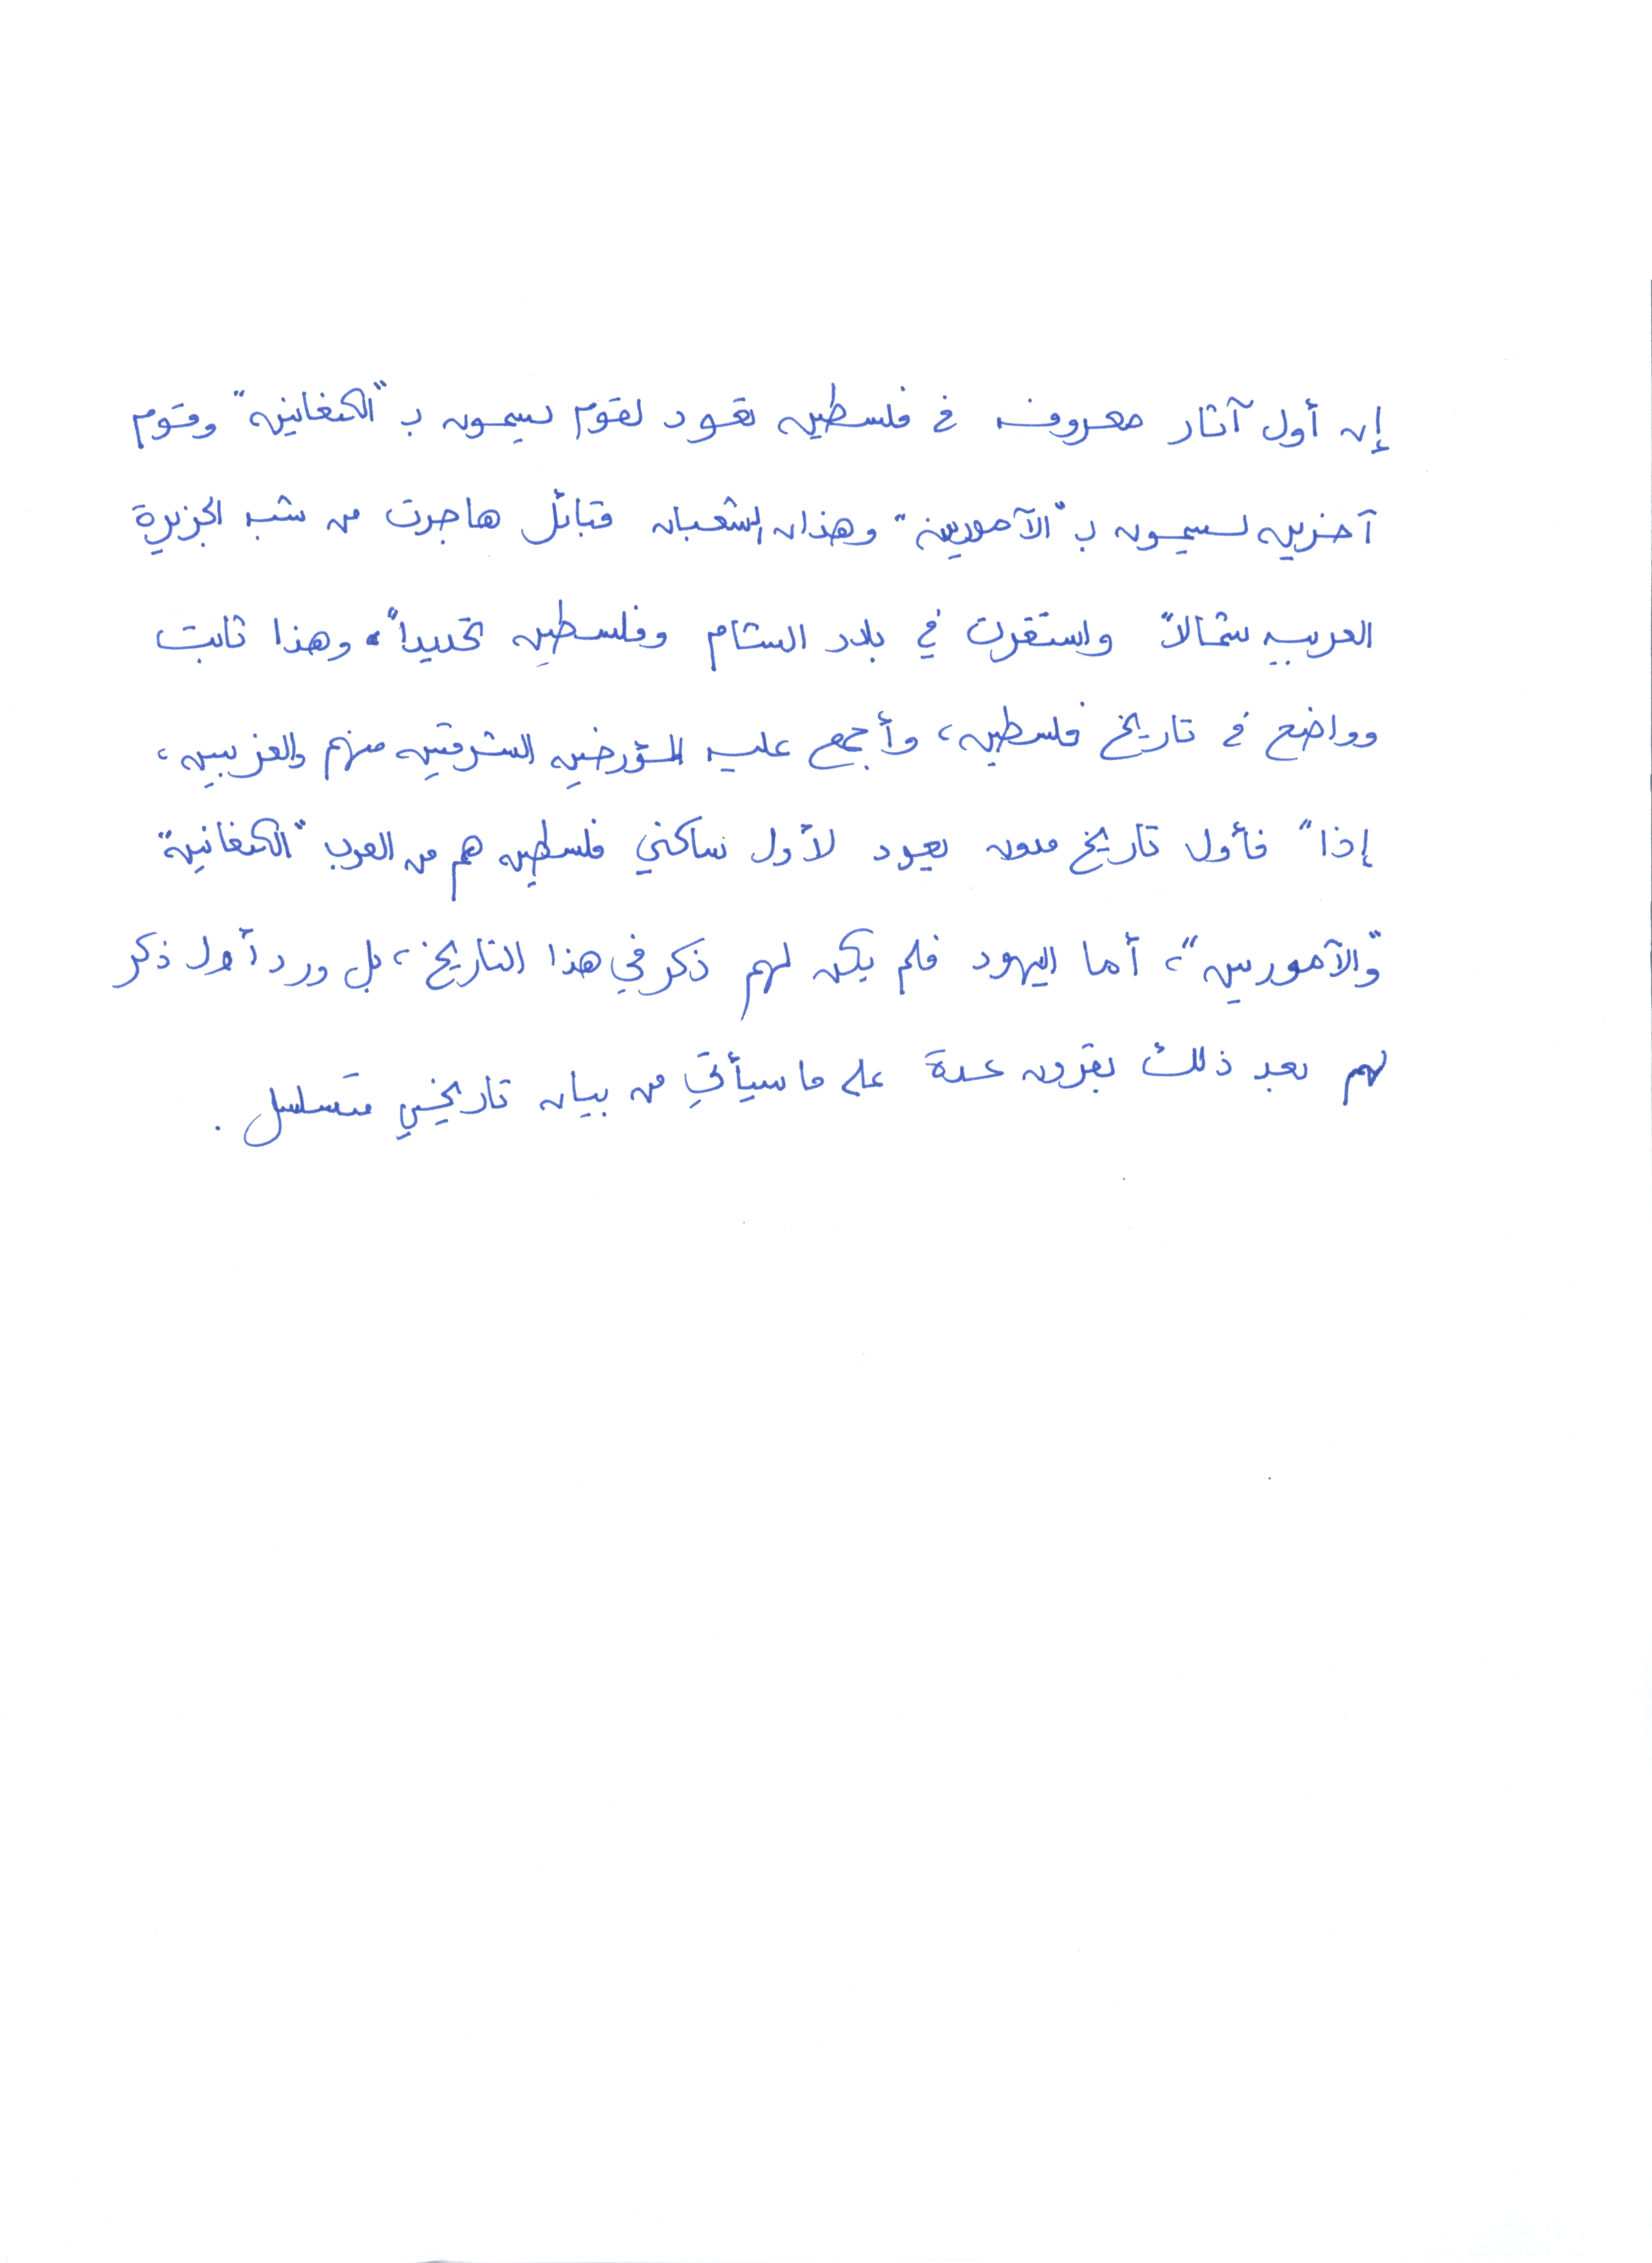 إن أول آثار معروف في فلسطين تعود لقوم يسمون بـ "الكنعانين" وقوم
آخرين يسمون بـ "الآموريين" وهذان الشعبان قبائل هاجرت من شبه الجزيرة
العربيه شمالاً واستقرت في بلاد الشام وفلسطين تحديداً، وهذا ثابت
وواضح في تاريخ فلسطين، وأجمع عليه المؤرخين الشرقيين منهم والغربيين،
إذاً فأول تاريخ مدون يعود لأول ساكني فلسطين هم من العرب "الكنعانين"
"والآموريين"، أما اليهود فلم يكن لهم ذكر في هذا التاريخ، بل ورد أول ذكر
لهم بعد ذلك بقرون عدة على ما سيأتي من بيان تاريخي متسلسل.